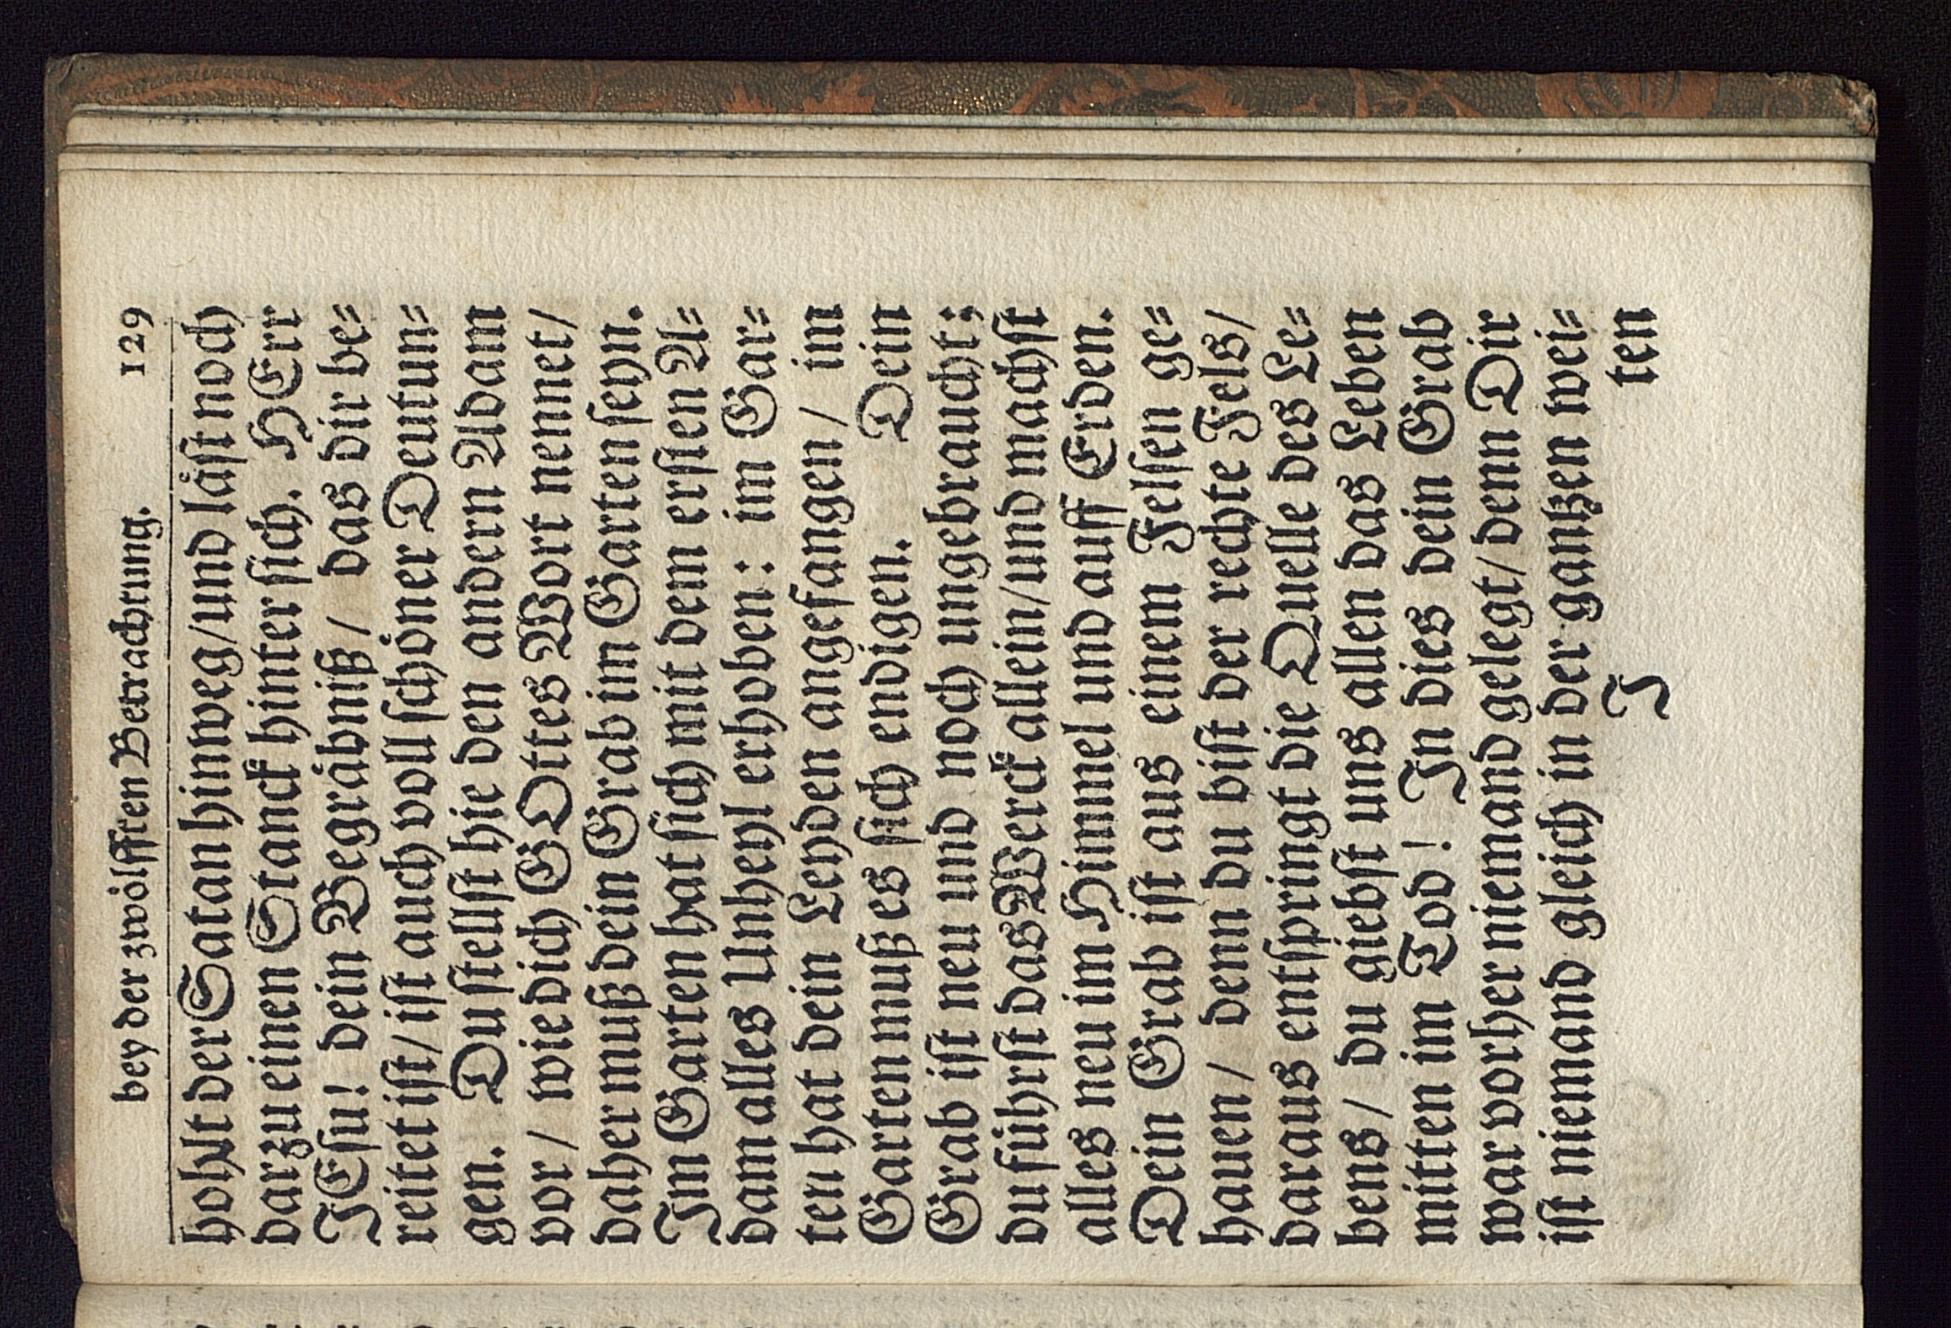 bey der zwölfften Betrachtung. 129
hohlt der Satan hinweg/und läst noch
darzu einen Stanck hinter sich. HErr
JEsu! dein Begräbniß/ das dir be-
reitet ist/ ist auch voll schöner Deutun-
gen. Du stellst hie den andern Adam
vor/ wie dich GOttes Wort nennet/
daher muß dein Grab im Garten seyn.
Im Garten hat sich mit dem ersten A-
dam alles Unheyl erhoben: im Gar-
ten hat dein Leyden angefangen/ im
Garten muß es sich endigen. Dein
Grab ist neu und noch ungebraucht;
du führst das Werck allein/und machst
alles neu im Himmel und auff Erden.
Dein Grab ist aus einem Felsen ge-
hauen/ denn du bist der rechte Fels/
daraus entspringt die Quelle des Le-
bens/ du giebst uns allen das Leben
mitten im Tod! In dies dein Grab
war vorher niemand gelegt/ denn Dir
ist niemand gleich in der gantzen wei-
J ten